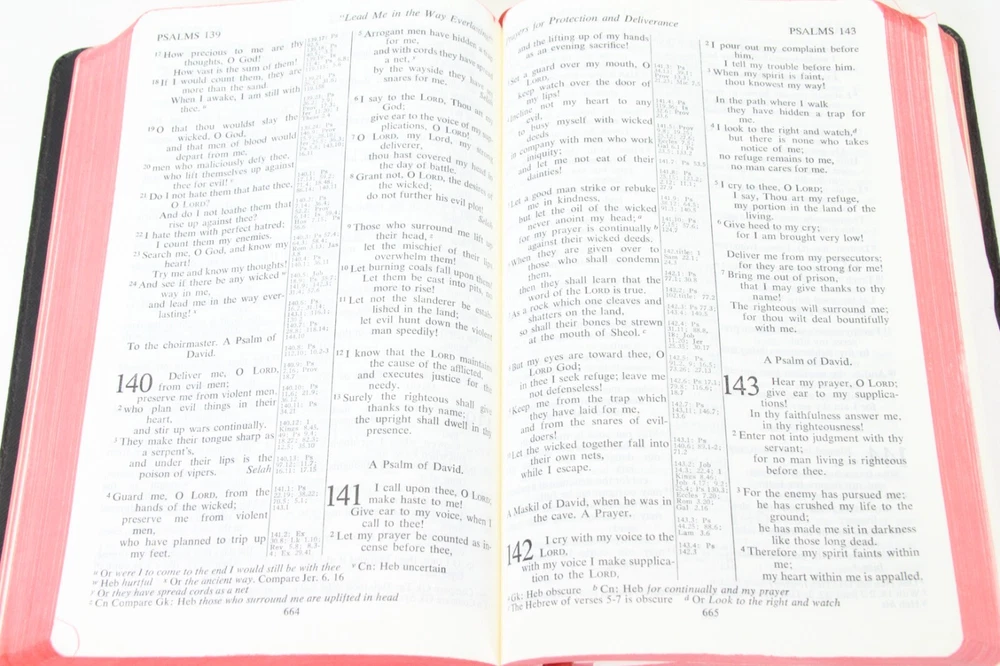 PSALMS 139
"Lead Me in the Way
17 How precious to me are thy
thoughts, O God!
How vast is the sum of them!
18 If I would count them, they are
more than the sand.
When I awake, I am still with
thee.
19 O that thou wouldst slay the
wicked, O God,
and that men of blood would
depart from me,
20 men who maliciously defy thee,
who lift themselves up against
thee for evil!
21 Do I not hate them that hate thee,
O LORD?
And do I not loathe them that
rise up against thee?
22 I hate them with perfect hatred;
I count them my enemies.
23 Search me, O God, and know my
heart!
Try me and know my thoughts!
24 And see if there be any wicked
way in me,
and lead me in the way ever-
lasting!
To the choirmaster. A Psalm of
David.
140 Deliver me, O LORD,
from evil men;
preserve me from violent men,
2 who plan evil things in their
heart,
and stir up wars continually.
3 They make their tongue sharp as
a serpent's,
and under their lips is the
poison of vipers. Selah
4 Guard me, O LORD, from the
hands of the wicked;
preserve me from violent
men,
who have planned to trip up
my feet.
5 Arrogant men have hidden a
for me,
and with cords they have
a net,
by the wayside they have
snares for me.
6 I say to the LORD, Thou art
God;
give ear to the voice of my
plications, O LORD!
7 O LORD, my Lord, my strong
deliverer,
thou hast covered my head in
the day of battle.
8 Grant not, O LORD, the desires of
the wicked;
do not further his evil plot!
Selah
9 Those who surround me lift up
their head,
let the mischief of their lips
overwhelm them!
10 Let burning coals fall upon them!
Let them be cast into pits, no
more to rise!
11 Let not the slanderer be estab-
lished in the land;
let evil hunt down the violent
man speedily!
12 I know that the LORD maintains
the cause of the afflicted,
and executes justice for the
needy.
13 Surely the righteous shall give
thanks to thy name;
the upright shall dwell in thy
presence.
A Psalm of David.
141 I call upon thee, O LORD;
make haste to me!
Give ear to my voice, when I
call to thee!
2 Let my prayer be counted as in-
cense before thee,
u Or were I to come to the end I would still be with thee v Cn: Heb uncertain
w Heb hurtful x Or the ancient way. Compare Jer. 6. 16
y Or they have spread cords as a net
Cn Compare Gk: Heb those who surround me are uplifted in head
664
for Protection and Deliverance
PSALMS 143
and the lifting up of my hands
as an evening sacrifice!
Set a guard over my mouth, O
LORD,
keep watch over the door of
my lips!
Incline not my heart to any
evil,
to busy myself with wicked
deeds
in company with men who work
iniquity;
and let me not eat of their
dainties!
Let a good man strike or rebuke
me in kindness,
but let the oil of the wicked
never anoint my head;
for my prayer is continually b
against their wicked deeds.
When they are given over to
those who shall condemn
them,
then they shall learn that the
word of the LORD is true.
As a rock which one cleaves and
shatters on the land,
so shall their bones be strewn
at the mouth of Sheol. c
But my eyes are toward thee, O
LORD God;
in thee I seek refuge; leave me
not defenseless!
Keep me from the trap which
they have laid for me,
and from the snares of evil-
doers!
Let the wicked together fall into
their own nets,
while I escape.
A Maskil of David, when he was in
the cave. A Prayer.
142 I cry with my voice to the
LORD,
with my voice I make supplica-
tion to the LORD,
2 I pour out my complaint before
him,
I tell my trouble before him.
3 When my spirit is faint,
thou knowest my way!
In the path where I walk
they have hidden a trap for
me.
4 I look to the right and watch, d
but there is none who takes
notice of me;
no refuge remains to me,
no man cares for me.
5 I cry to thee, O LORD;
I say, Thou art my refuge,
my portion in the land of the
living.
6 Give heed to my cry;
for I am brought very low!
Deliver me from my persecutors;
for they are too strong for me!
7 Bring me out of prison,
that I may give thanks to thy
name!
The righteous will surround me;
for thou wilt deal bountifully
with me.
A Psalm of David.
143 Hear my prayer, O LORD;
give ear to my supplica-
tions!
In thy faithfulness answer me,
in thy righteousness!
2 Enter not into judgment with thy
servant;
for no man living is righteous
before thee.
3 For the enemy has pursued me;
he has crushed my life to the
ground;
he has made me sit in darkness
like those long dead.
4 Therefore my spirit faints within
me;
my heart within me is appalled.
Gk: Heb obscure b Cn: Heb for continually and my prayer
The Hebrew of verses 5-7 is obscure d Or Look to the right and watch
665